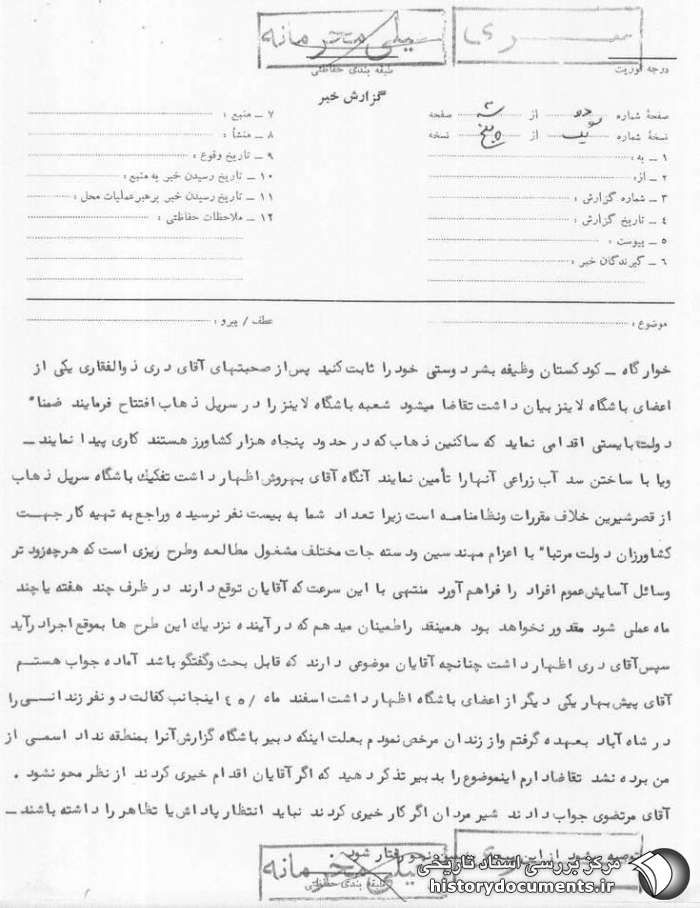 خیلی محرمانه
سری
طبقه بندی حفاظتی
درجه فوریت
گزارش خبر
صفحهٔ شماره از صفحه
نسخهٔ شماره یک از پنج نسخه
۱ ــ به :
۲ ــ از :
۳ ــ شماره گزارش :
۴ ــ تاریخ گزارش :
۵ ــ پیوست :
۶ ــ گیرندگان خبر :
۷ ــ منبع :
۸ ــ منشأ :
۹ ــ تاریخ وقوع :
۱۰ ــ تاریخ رسیدن خبر به منبع :
۱۱ ــ تاریخ رسیدن خبر برهبر عملیات محل :
۱۲ ــ ملاحظات حفاظتی :
موضوع :
عطف / پیرو :
خوار گاه ــ کودکستان وظیفه بشر دوستی خود را ثابت کنید پس از صحبتهای آقای دری ذوالفقاری یکی از
اعضای باشگاه لاینز بیان داشت تقاضا میشود شعبه باشگاه لاینز را در سرپل ذهاب افتتاح فرمایند ضمنا"
دولت بایستی اقدامی نماید که ساکنین ذهاب که در حدود پنجاه هزار کشاورز هستند کاری پیدا نمایند ــ
ویا با ساختن سد آب زراعی آنهارا تأمین نمایند آنگاه آقای بهروش اظهار داشت تفکیك باشگاه سرپل ذهاب
از قصرشیرین خلاف مقررات ونظامنامه است زیرا تعداد شما به بیست نفر نرسیده وراجع به تهیه کار جهت
کشاورزان دولت مرتبا" با اعزام مهندسین ودسته جات مختلف مشغول مطالعه وطرح ریزی است که هرچه زودتر
وسائل آسایش عموم افراد را فراهم آورد منتهی با این سرعت که آقایان توقع دارند در ظرف چند هفته یا چند
ماه عملی شود مقدور نخواهد بود همینقدر اطمینان میدهم که در آینده نزدیك این طرح ها بموقع اجرا درآید
سپس آقای دری اظهار داشت چنانچه آقایان موضوعی دارند که قابل بحث وگفتگو باشد آماده جواب هستم
آقای پیش بهار یکی دیگر از اعضای باشگاه اظهار داشت اسفند ماه /۴۵ اینجانب کفالت دو نفر زندانی را
در شاه آباد بعهده گرفتم واز زندان مرخص نمودم بعلت اینکه دبیر باشگاه گزارش آنرا بمنطقه نداد اسمی از
من برده نشد تقاضا دارم اینموضوع را بدبیر تذکر دهید که اگر آقایان اقدام خیری کردند از نظر محو نشود .
آقای مرتضوی جواب دادند شیر مردان اگر کار خیری کردند نباید انتظار پاداش یا تظاهر را داشته باشند ــ
توصیه میشود از این نحو رفتار شود
سری
خیلی محرمانه
طبقه بندی حفاظتی
مرکز بررسی اسناد تاریخی
historydocuments.ir